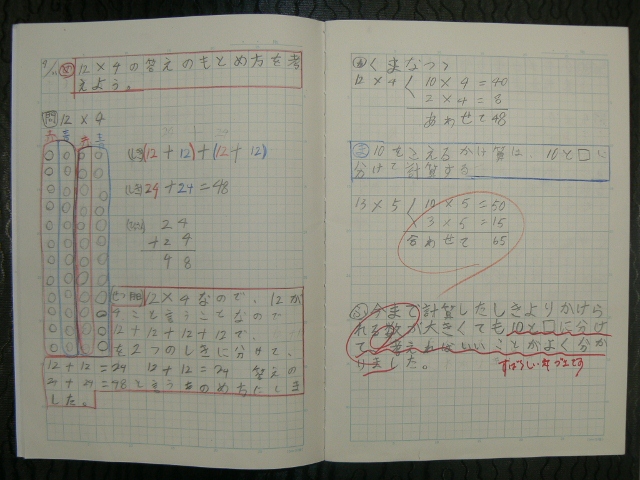 9/11 め 12×4の答えのもとめ方を考
えよう。
問 12×4
赤 青 赤 青
(しき)(12+12)+(12+12)
(しき)24+24=48
24
+24
48
12×4なので、12が
4こと言うことなので
12+12+12+12で、
を2つのしきに分けて、
12+12=24 12+12=24 答えの
24+24=48と言うもとめ方にしま
した。
くまなつ
12×4 10×4=40
2×4=8
あわせて48
ま 10をこえるかけ算は、10と□に
分けて計算する
13×5 10×5=50
3×5=15
合わせて 65
ふ 今まで計算したしきよりかけら
れる数が大きくても10と□に分け
て考えればいいことがよく分か
りました。
すばらしい気づきです